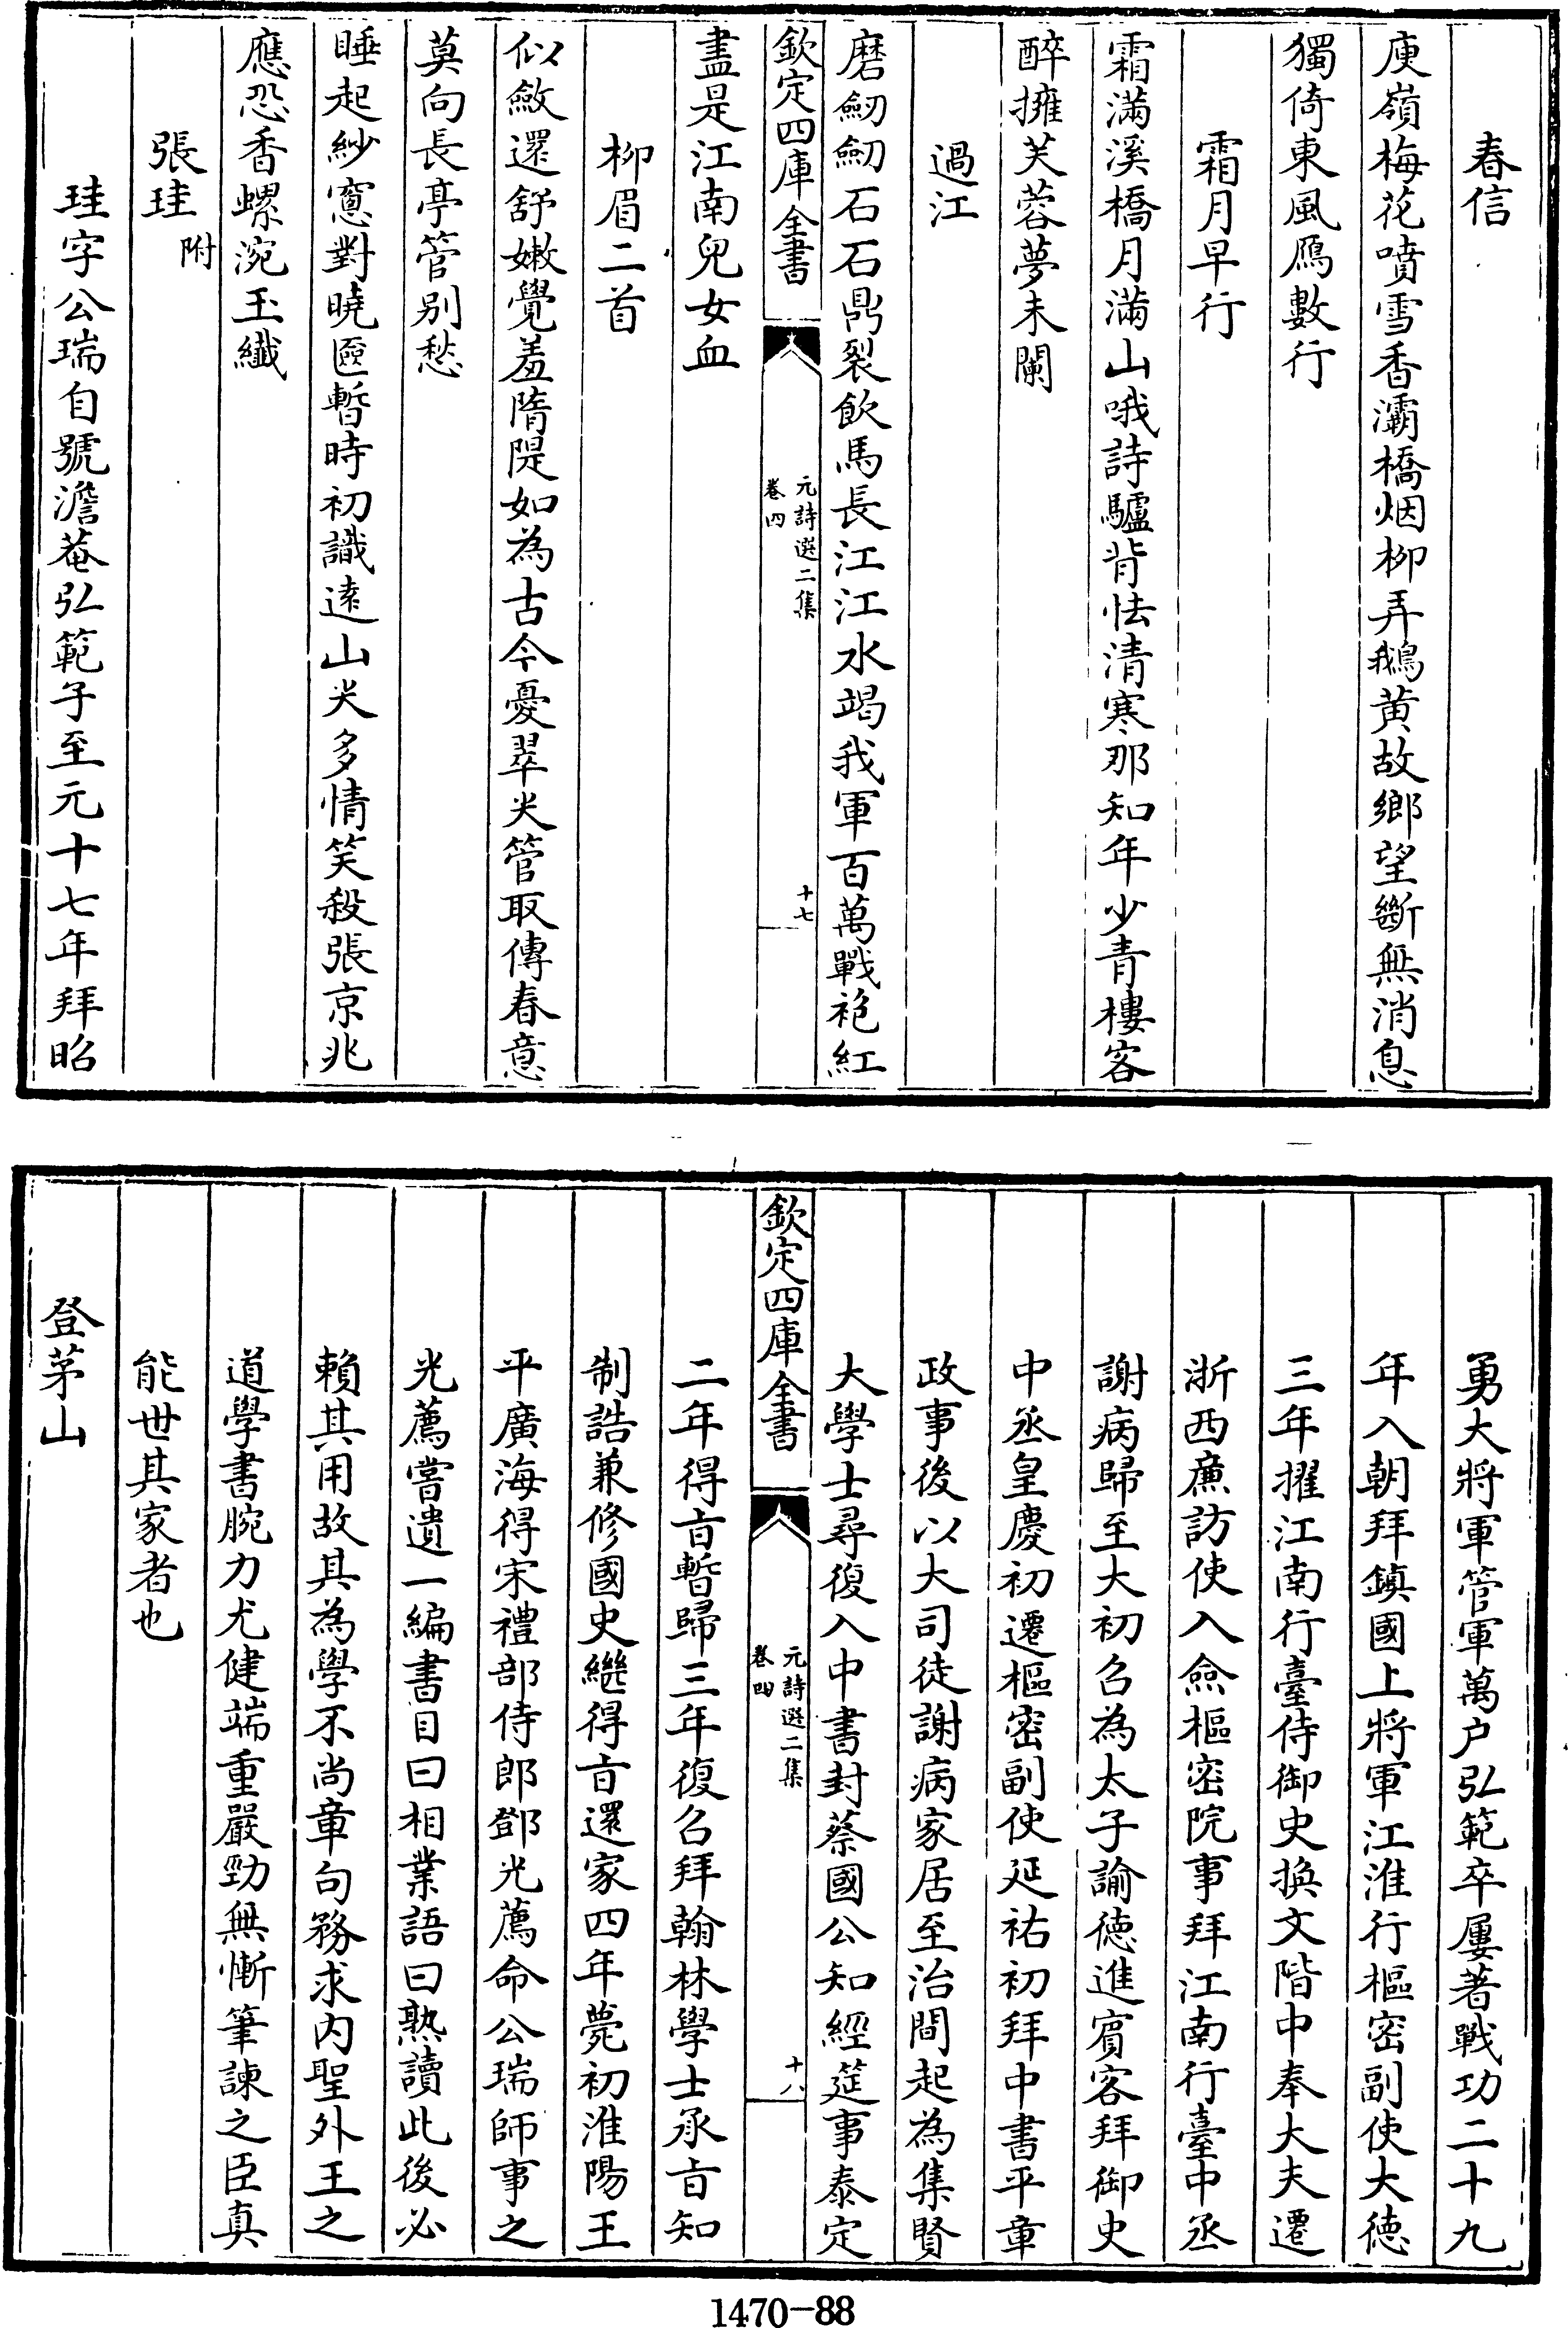 春信
庾嶺梅花噴雪香灞橋烟柳弄鵝黄故鄉望斷無消息
獨倚東風鴈數行
霜月早行
霜滿溪橋月滿山哦詩驢背怯清寒那知年少青樓客
醉擁芙蓉夢未闌
過江
磨劒劒石石鼎裂飲馬長江江水竭我軍百萬戰袍紅
欽定四庫全書
元詩選二集
卷四
十七
盡是江南兒女血
柳眉二首
似斂還舒嫩覺羞隋隄如為古今憂翠尖管取傳春意
莫向長亭管别愁
睡起紗窻對曉匳暫時初識遠山尖多情笑殺張京兆
應恐香螺涴玉纖
張珪附
珪字公瑞自號澹菴弘範子至元十七年拜昭
勇大將軍管軍萬户弘範卒屢著戰功二十九
年入朝拜鎮國上將軍江淮行樞密副使大德
三年擢江南行臺侍御史換文階中奉大夫遷
浙西亷訪使入僉樞密院事拜江南行臺中丞
謝病歸至大初召為太子諭德進賓客拜御史
中丞皇慶初遷樞密副使延祐初拜中書平章
政事後以大司徒謝病家居至治間起為集賢
大學士尋復入中書封蔡國公知經筵事泰定
欽定四庫全書
元詩選二集
卷四
十八
二年得㫖暫歸三年復召拜翰林學士承㫖知
制誥兼修國史繼得㫖還家四年薨初淮陽王
平廣海得宋禮部侍郎鄧光薦命公瑞師事之
光薦嘗遺一編書目曰相業語曰熟讀此後必
賴其用故其為學不尚章句務求内聖外王之
道學書腕力尤健端重嚴勁無慚筆諫之臣真
能世其家者也
登茅山
1470-88